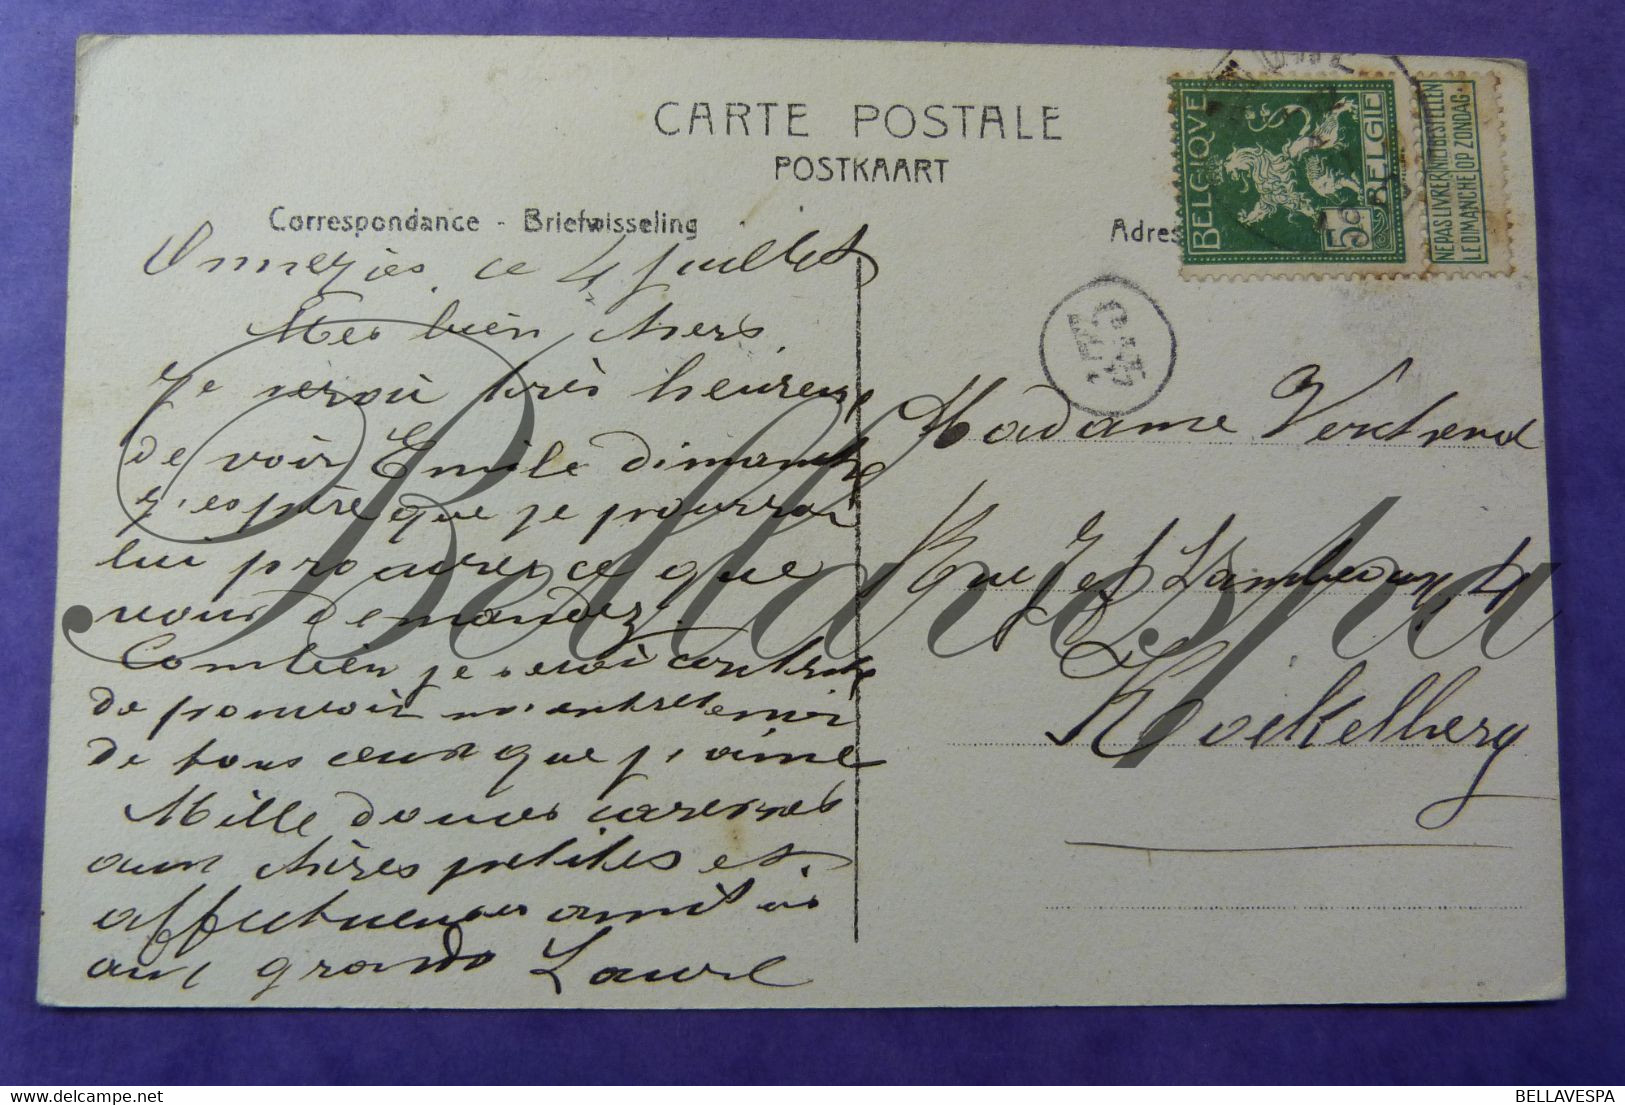 CARTE POSTALE
POSTKAART
Correspondance - Briefwisseling
Adres
BELGIQUE
BELGIË
5c
NE PAS LIVRER LE DIMANCHE
NIET BESTELLEN OP ZONDAG
Onnezies, ce 4 juillet
Mes bien chers,
Je serai très heureuse
de voir Emile dimanche
j'espère que je pourrai
lui procurer ce que
vous demandez.
Combien je serai contente
de pouvoir m'entretenir
de tous ceux que j'aime
Mille douces caresses
aux chères petites et
affectueuses amitiés
aux grands Laure
Madame
Rue Jef Lambeaux, 4
Koekelberg
Bellavespa
BELLAVESPA